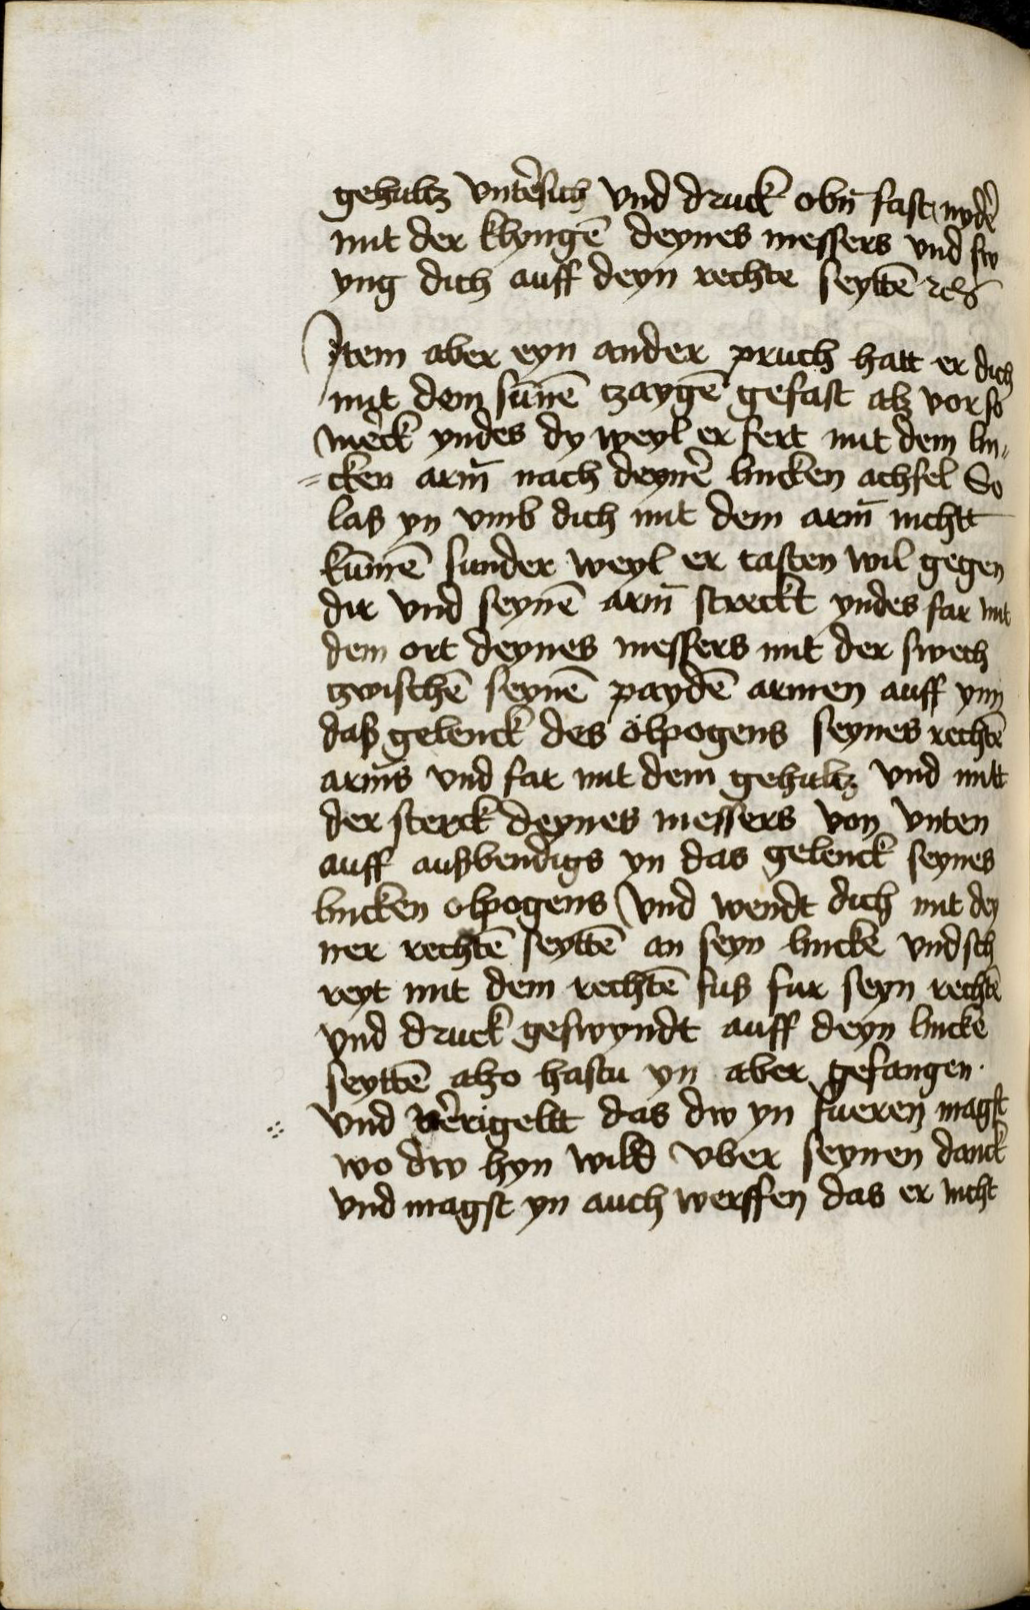 gehultz vnttersich vnd druck obñ fast nyder̃
mit der klyngē deynes messers vnd sw
yng dich auff deyn rechte seyttē ꝛcꝭ
Jtem aber eyn ander pruch hatt er dich
mit dem sūnē tzaygē gefast alz vor so
merck yndes dy weyl er fert mit dem lin„
„cken arm̄ nach deynēr lincken achsel So
las yn vmb dich mit dem arm̄ nichtt
kūmē sunder weyl er tasten wil gegen
dir vnd seynē arm̄ streckt yndes far mit
dem ort deynes messers mit der swech
tzwischē seynē paydē armen auff ynn
daß gelenck des ölpogens seynes rechtē
arm̄s vnd far mit dem gehultz vnd mitt
der sterck deynes messers von vnten
auff außbendigs yn das gelenck seynes
lincken olpogens vnd wendt dich mit dey
ner rechtē seyttē an seyn lincke vnd sch
reyt mit dem rechtē fuß fur seyn rechtē
vnd druck geswyndt auff deyn lincke
seyttē alzo hastu yn aber gefangen ·
vnd verrigeltt das dw yn fueren magst
wo dw hyn wild vber seynen danck
vnd magst yn auch werffen das er nicht